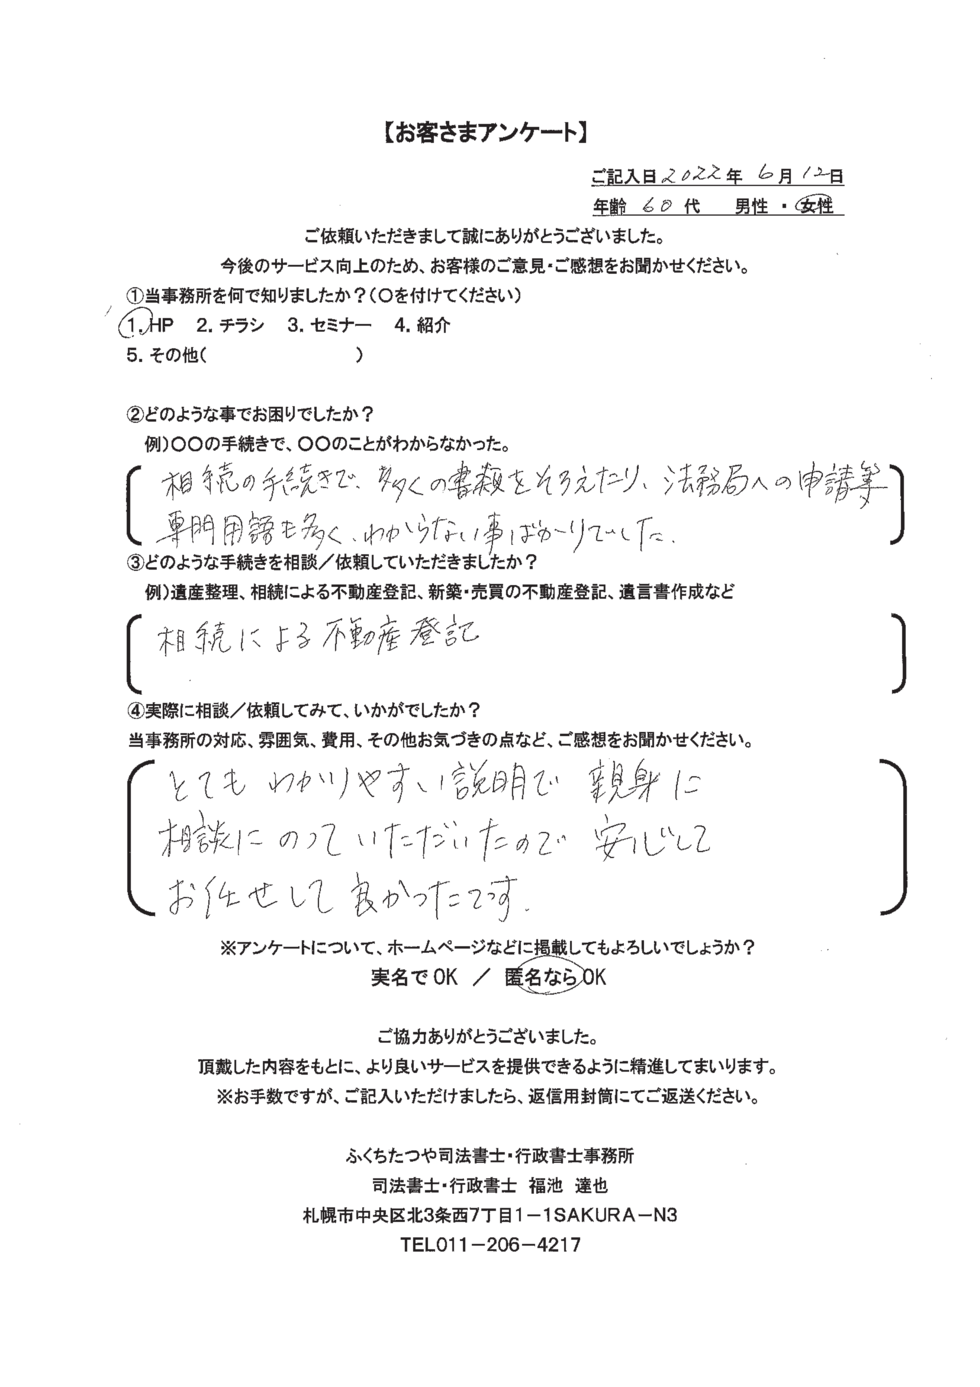 【お客さまアンケート】
ご記入日2022年 6月12日
年齢 60代 男性 ・ 女性
ご依頼いただきまして誠にありがとうございました。
今後のサービス向上のため、お客様のご意見・ご感想をお聞かせください。
①当事務所を何で知りましたか？（○を付けてください）
1. HP 2. チラシ 3. セミナー 4. 紹介
5. その他( )
②どのような事でお困りでしたか？
例）○○の手続きで、○○のことがわからなかった。
相続の手続きで、多くの書類をそろえたり、法務局への申請等
専門用語も多く、わからない事ばかりでした.
③どのような手続きを相談／依頼していただきましたか？
例）遺産整理、相続による不動産登記、新築・売買の不動産登記、遺言書作成など
相続による不動産登記
④実際に相談／依頼してみて、いかがでしたか？
当事務所の対応、雰囲気、費用、その他お気づきの点など、ご感想をお聞かせください。
とても わかりやすい説明で 親身に
相談にのっていただいたので 安心して
お任せして良かったです.
※アンケートについて、ホームページなどに掲載してもよろしいでしょうか？
実名でOK ／ 匿名ならOK
ご協力ありがとうございました。
頂戴した内容をもとに、より良いサービスを提供できるように精進してまいります。
※お手数ですが、ご記入いただけましたら、返信用封筒にてご返送ください。
ふくちたつや司法書士・行政書士事務所
司法書士・行政書士 福池 達也
札幌市中央区北3条西7丁目1－1SAKURA－N3
TEL011－206－4217